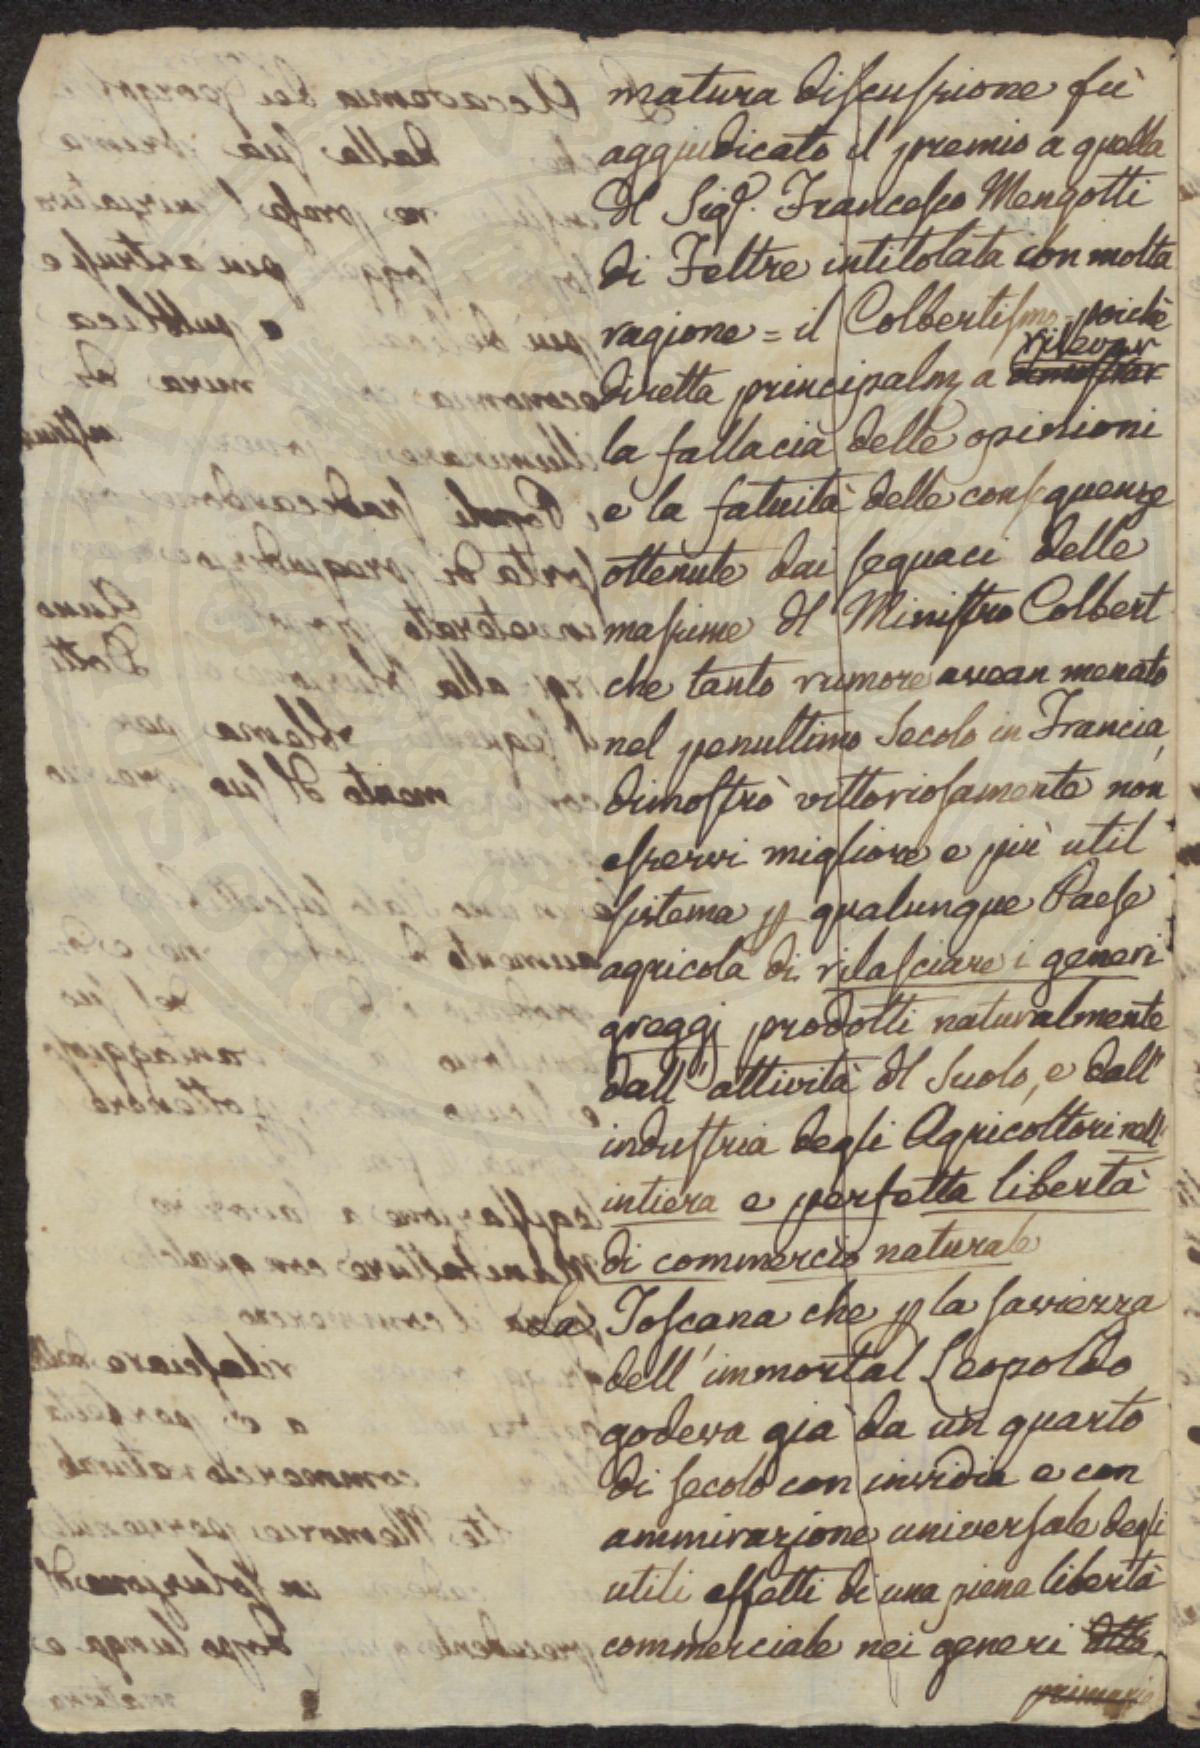 matura discussione fù
aggiudicato il premio a quella
dl Sigr. Francesco Mengotti
di Feltre intitolata con molta
ragione = il Colbertismo = poichè
rilevar
diretta principalm. a dimostrar
la fallacia delle opinioni
e la fatuità delle conseguenze
ottenute dai seguaci delle
massime dl Ministro Colbert
che tanto rumore avean menato
nel penultimo Secolo in Francia,
dimostrò vittoriosamente non
esservi migliore e più util
sistema p qualunque Paese
agricola di rilasciare i generi
greggi prodotti naturalmente
dall'attività dl Suolo, e dall'
industria degli Agricoltori nell'
intiera e perfetta libertà
di commercio naturale
La Toscana che p la saviezza
dell'immortal Leopoldo
godeva già da un quarto
di secolo con invidia e con
ammirazione universale degli
utili effetti di una piena libertà
commerciale nei generi
primaria